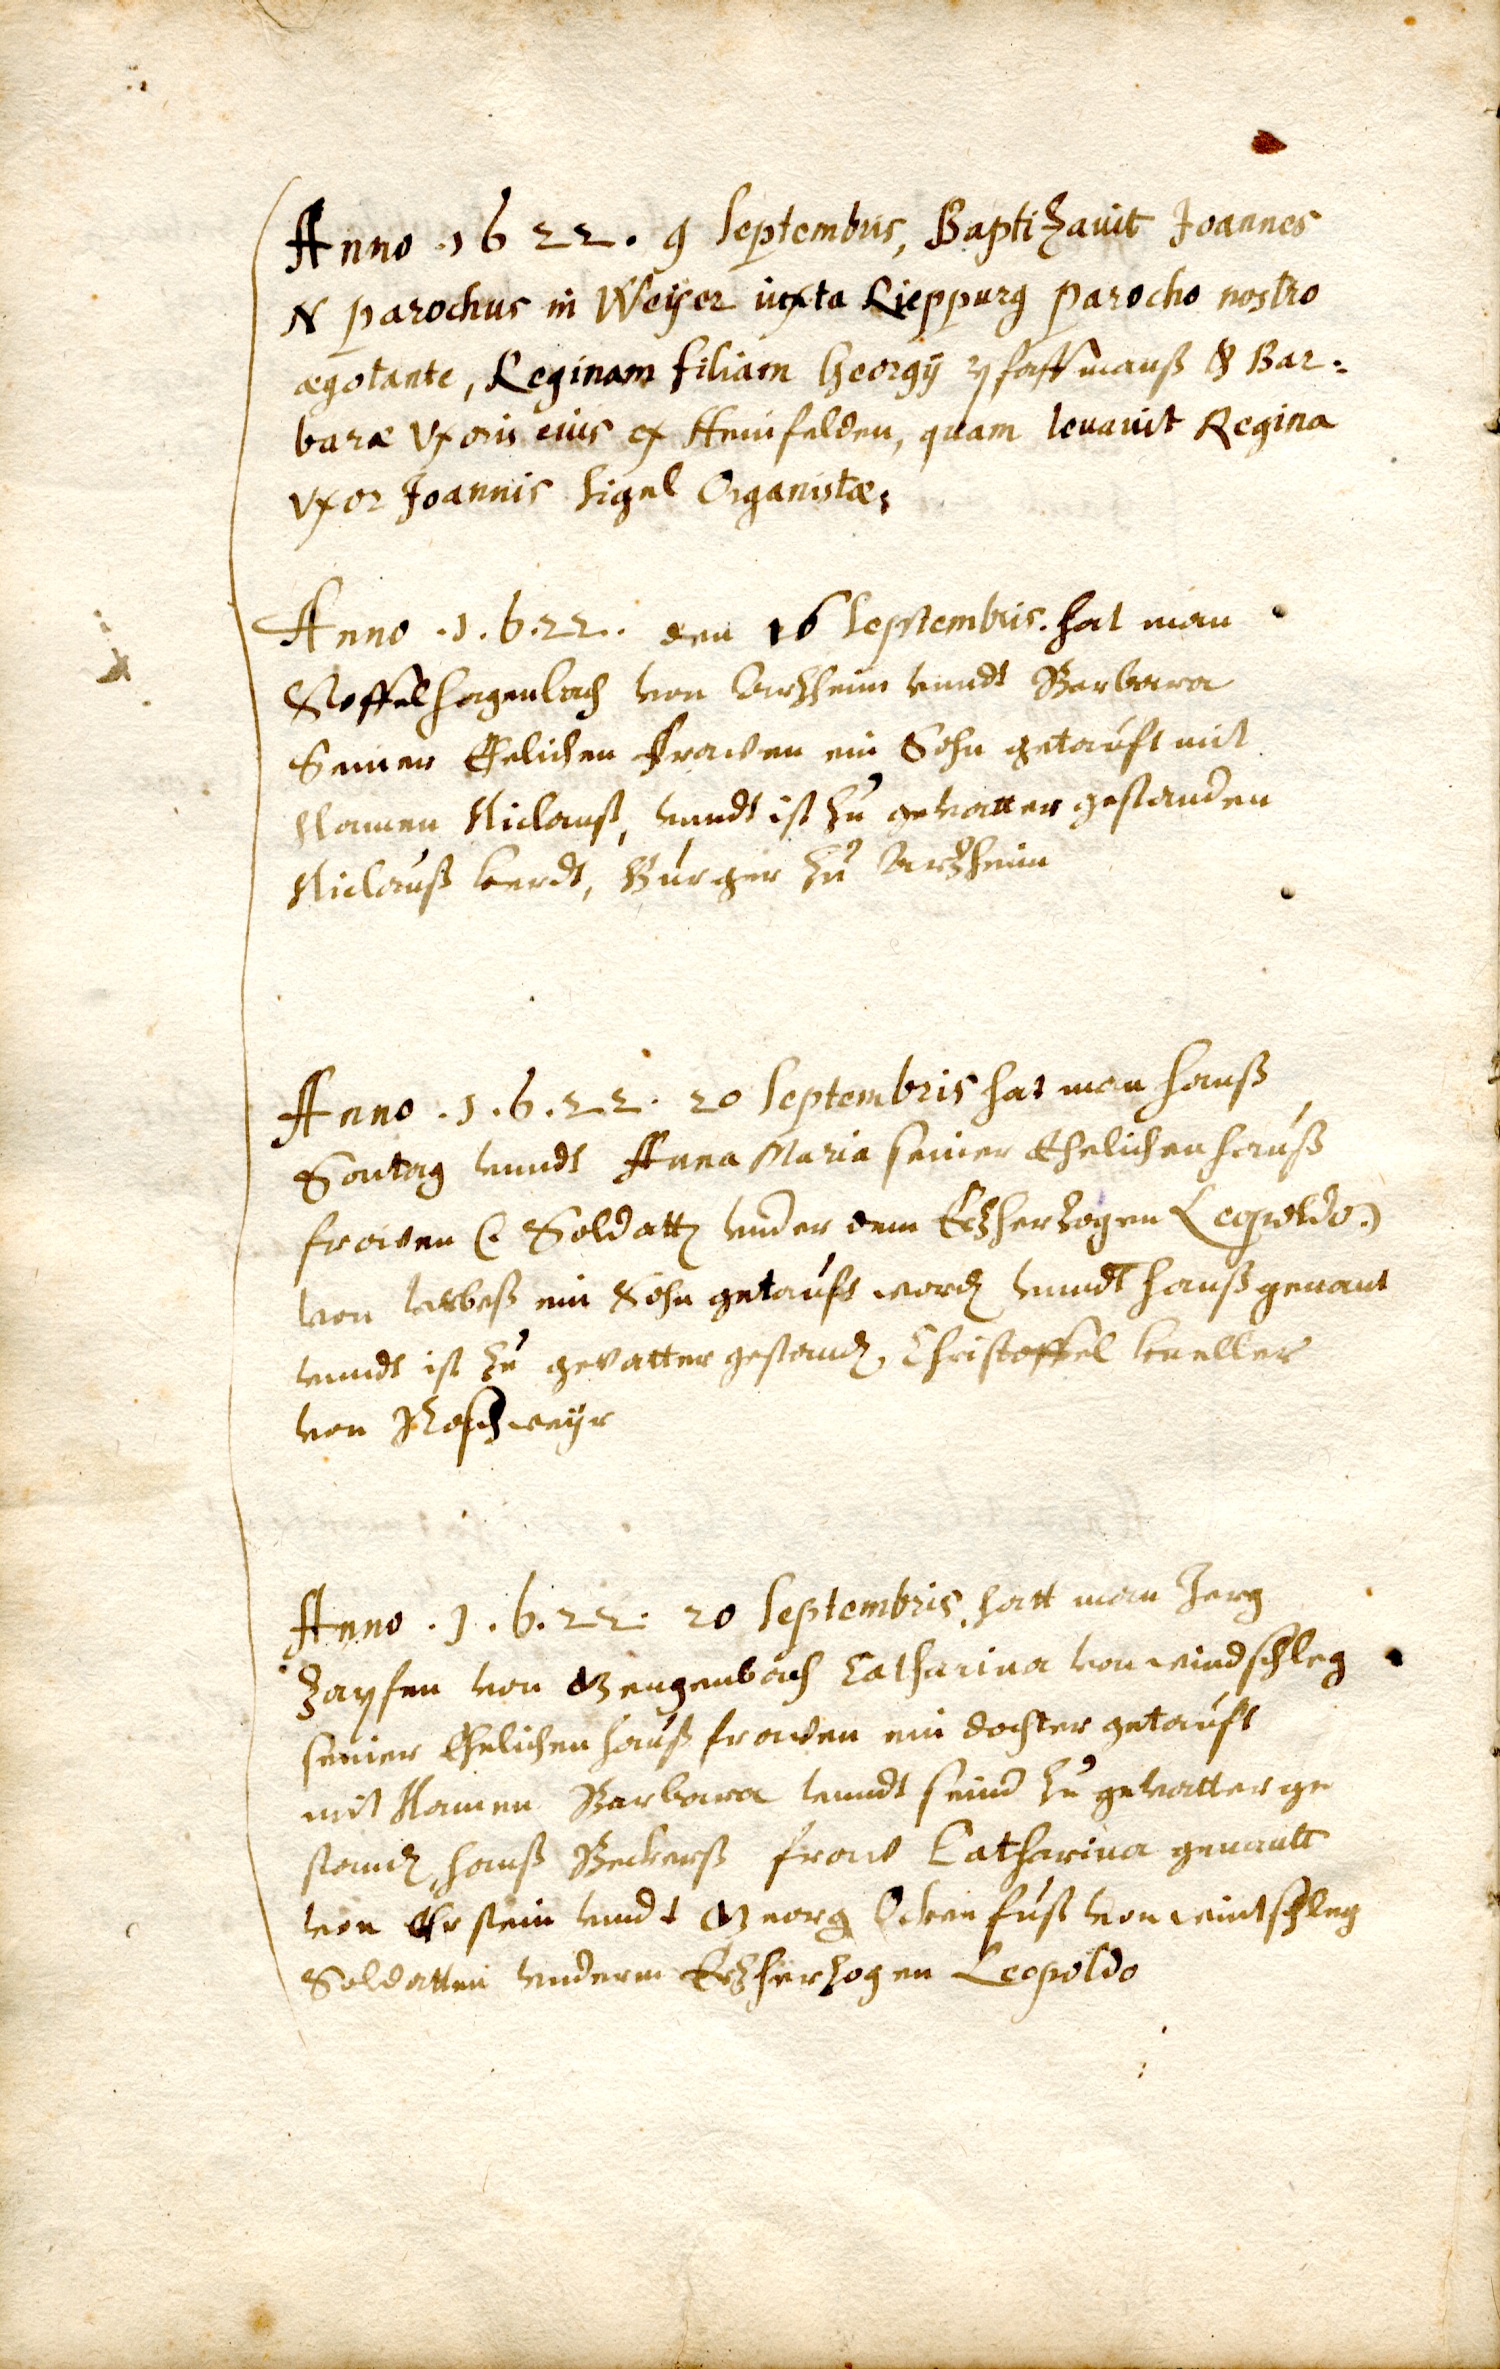 Anno .1622. 9 Septembris, Baptizauit Joannes
N parochus in Weijer iuxta Lieppurg parocho nostro
ægotante, Reginam filiam Georgij Pfaffmanß & Bar=
baræ Vxoris eius ex Heinfelden, quam leuauit Regina
Vxor Joannis Sigel Organistæ,
Anno .1.6.22. den 16 Septembris. hat man
Stoffel Hagenbach von Artzheim vnndt Barbara
Seiner Ehelichen Frawen ein Sohn getaufft mit
Namen Niclauß, vnndt ist zu gevatter gestanden
Niclauß, Burger zu Artzheim
Anno .1.6.22. 20 Septembris hat man Hanß
Sontag vnndt Anna Maria seiner Ehelichen hauß
frawen (. Soldatt vnder dem Ertzherzogen Leopoldo.)
von ein Sohn getaufft word vnndt Hanß genant
vnndt ist zu gevatter gestand, Christoffel Keeller
von Roschweyr
Anno .1.6.22. 20 Septembris, hatt man Jerg
Zapfen von Gengenbach Catharina von windschleg
seiner Ehelichen haußfrawen ein dochter getaufft
mit Namen Barbara vnndt seind zu gevatter ge
stand, Hanß Beckerß fraw Catharina genantt
von Erstein vnndt Georg Ockenfuß von wintschleg
Soldatten vnderm Ertzherzogen Leopoldo